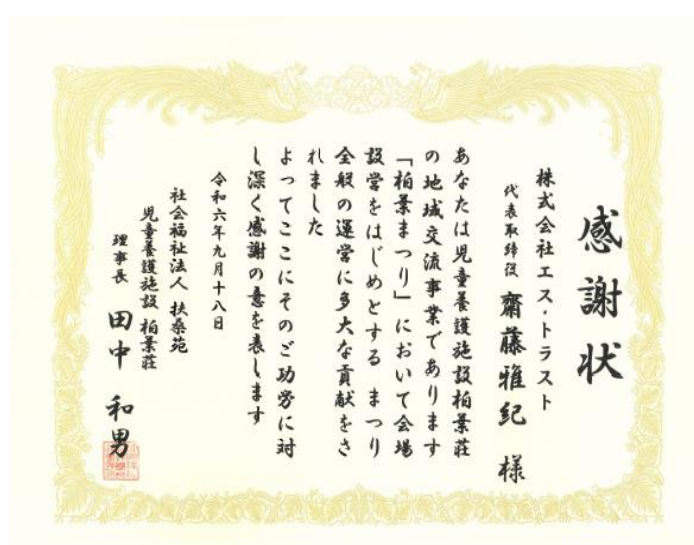 感謝状
株式会社エス・トラスト
代表取締役 齋藤雅紀 様
あなたは児童養護施設柏葉荘
の地域交流事業であります
「柏葉まつり」において会場
設営をはじめとする まつり
全般の運営に多大な貢献をさ
れました
よってここにそのご功労に対
し深く感謝の意を表します
令和六年九月十八日
社会福祉法人 扶桑苑
児童養護施設 柏葉荘
理事長 田中 和男